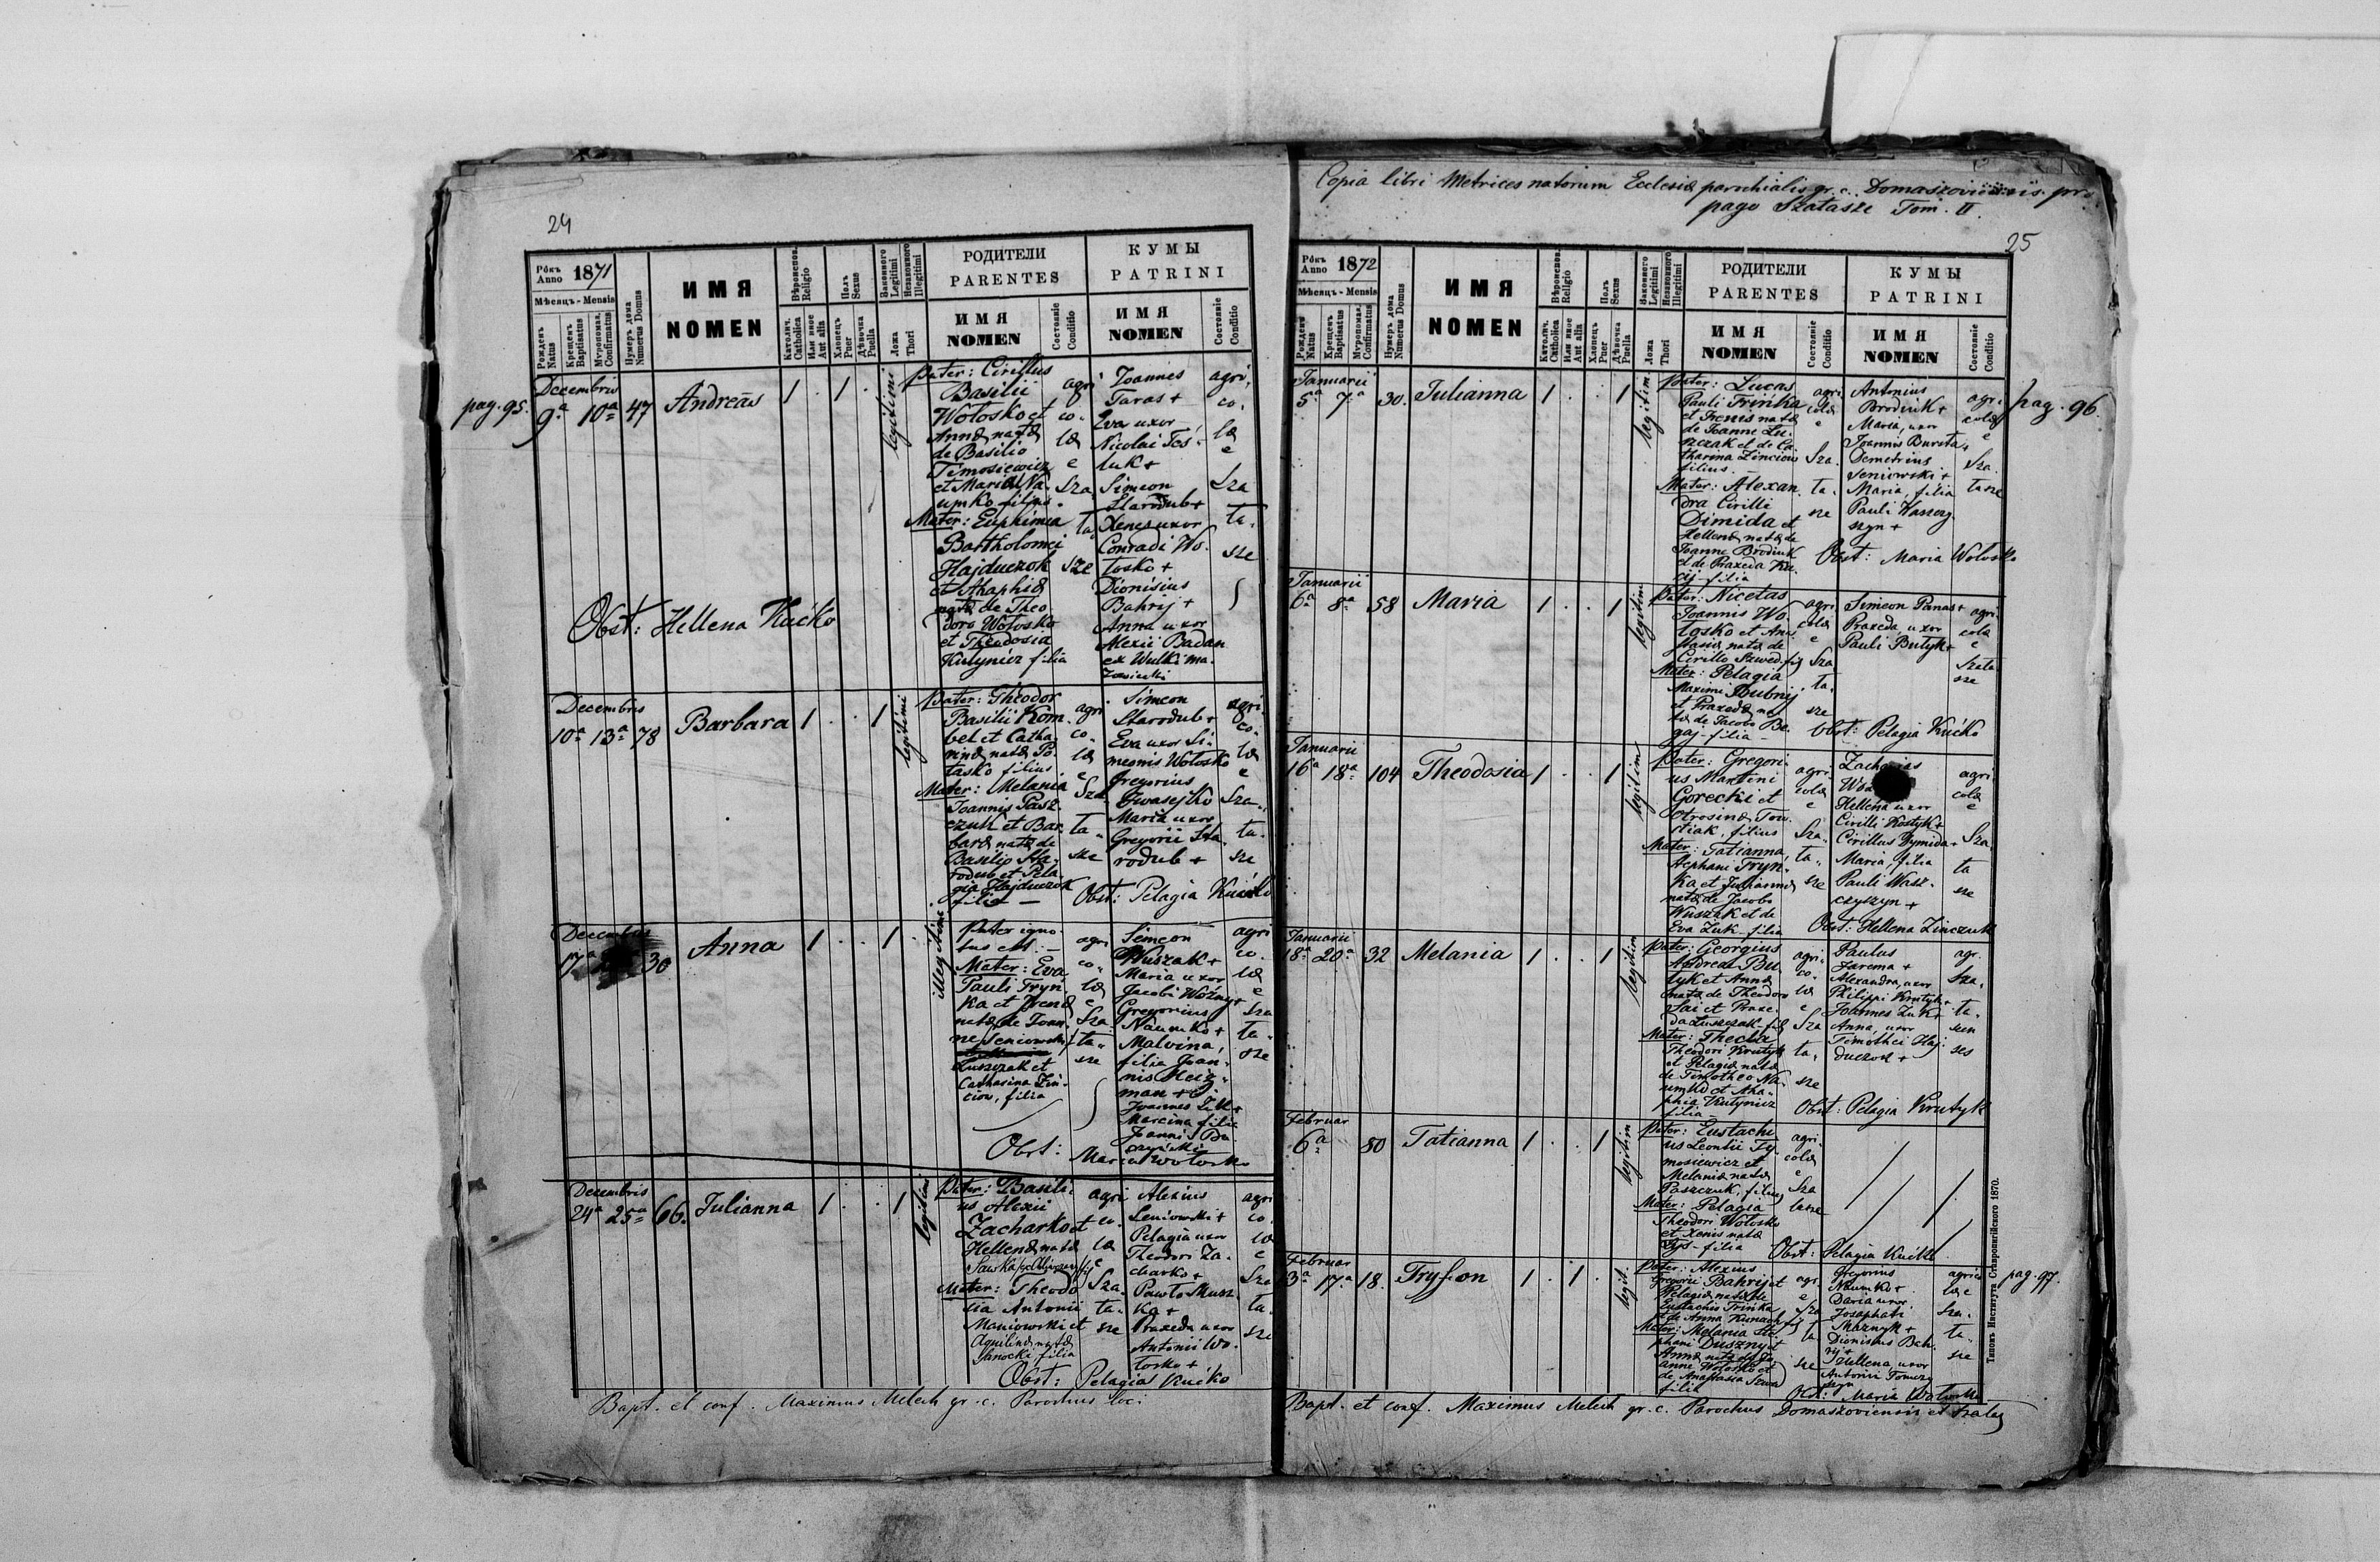 24
Рокъ Anno 1871
Мѣсяцъ - Mensis
Рожденъ Natus
Крещенъ Baptisatus
Мѵропомаз. Confirmatus
Нумеръ дома Numerus Domus
ИМЯ
NOMEN
Вѣроиспов. Religio
Католич. Catholica
Или иное Aut alia
Полъ Sexus
Хлопецъ Puer
Дѣвочка Puella
Законного Legitimi
Незаконного Illegitimi
Ложа Thori
РОДИТЕЛИ
PARENTES
ИМЯ
NOMEN
Состояніе Conditio
КУМЫ
PATRINI
ИМЯ
NOMEN
Состояніе Conditio
pag. 95.
Decembris
9a 10a 47 Andreas 1 . 1 . legitimi
Pater: Cirillus
Basilii
Wołosko et
Annæ natæ
de Basilio
Timosiewicz
et Maria Na-
umko filius.
Mater: Euphimia
Bartholomei
Hajduczok
et Ahaphiæ
natæ de Theo
doro Wołosko
et Theodosia
Kulynicz filia
agri
co-
læ
e
Sza
ta
sze
Joannes
Taras +
Eva uxor
Nicolai Tes-
luk +
Simeon
Starodub +
Xenes uxor
Conradi Wo-
łosko +
Dionisius
Bahrij +
Anna uxor
Alexii Badan
ex Wulki ma-
zowiecki
agri,
co-
læ
e
Sza
ta-
sze
Obst: Hellena Kućko
Decembris
10a 13a 78 Barbara 1 . . 1 legitimi
Pater: Theodor
Basilii Kom-
bel et Catha-
rinæ natæ Po-
tasko filius
Mater: Melania
Joannis Pasz-
czuk et Bar-
baræ natæ de
Basilio Sta-
rodub et Pela-
gia Hajduczok
filia —
agri-
co-
læ
e
Sza
ta-
sze
Simeon
Starodub +
Eva uxor Si-
meonis Wołosko
Gregorius
Iwasejko
Maria uxor
Gregorii Sta-
rodub +
agri-
co-
læ
e
Sza-
ta-
sze
Obst: Pelagia Kućko
Decembris
17a 30 Anna 1 . . 1 . illegitimi
Pater igno-
tus est. —
Mater: Eva
Pauli Tryn-
ka et Irenæ
natæ de Joan-
ne
Łuszczak et
Catharina Zin-
ciow, filia
agri
co-
læ
e
Sza
ta-
sze
Simeon
Wuszak +
Maria uxor
Jacobi Woźny +
Gregorius
Naumko +
Malvina,
filia Joan-
nis Heig-
man +
Joannes Żuk +
Marcina filia
Joannis
agri
co-
læ
e
Sza
ta-
sze
Obst: Maria Wołosko
Decembris
24a 25a 66. Julianna 1 . . 1 legitimi
Pater: Basili-
us Alexii
Zacharko et
Hellenæ natæ
Sawka
Mater: Theodo
sia Antonii
Maniowski et
Aquilinæ natæ
Sanocki filia
agri
co-
læ
e
Sza-
ta-
sze
Alexius
Seniowski +
Pelagia uxor
Theodori Za-
charko +
Pawło Musz-
ka +
Praxeda uxor
Antonii Wo-
łosko +
agri
co-
læ
e
Sza
ta-
sze
Obst: Pelagia Kućko
Bapt. et conf. Maximus Melech gr. c. Parochus loci
Copia libri Metrices natorum Ecclesiæ parochialis gr. c. Domaszoviensis pro
pago Szałasze Tom. II.
25
Рокъ Anno 1872
Мѣсяцъ - Mensis
Рожденъ Natus
Крещенъ Baptisatus
Мѵропомаз. Confirmatus
Нумеръ дома Numerus Domus
ИМЯ
NOMEN
Вѣроиспов. Religio
Католич. Catholica
Или иное Aut alia
Полъ Sexus
Хлопецъ Puer
Дѣвочка Puella
Законного Legitimi
Незаконного Illegitimi
Ложа Thori
РОДИТЕЛИ
PARENTES
ИМЯ
NOMEN
Состояніе Conditio
КУМЫ
PATRINI
ИМЯ
NOMEN
Состояніе Conditio
pag. 96.
Januarii
5a 7a 30. Julianna 1 . . 1 legitim.
Pater: Lucas
Pauli Trińka
et Irenis natæ
de Joanne Łu-
szczak et de Ca-
tharina Zinciow
filius. —
Mater: Alexan-
dra Cirilli
Dimida et
Hellenæ natæ de
Joanne Brodiuk
et de Praxeda Ku-
cij filia
agri
colæ
e
Sza.
ta-
sze
Antonius
Brodiuk +
Maria, uxor
Joannis Bursta,
Demetrius
Seniowski +
Maria, filia
Pauli Waszczy-
szyn +
agri-
colæ
e
Sza-
tasze
Obst: Maria Wołosko
Januarii
6a 8a 58 Maria 1 . . 1 legitimi
Pater: Nicetas
Joannis Wo-
łosko et Ana-
stasiæ natæ de
Cirillo Szwed-
Mater: Pelagia
Maximi Dubnij
et Praxedæ na-
tæ de Jacobo Be-
gaj - filia —
agri
colæ
e
Sza
ta-
sze
Simeon Panas +
Praxeda, uxor
Pauli Butyk +
agri-
colæ
e
Szata
sze
Obst: Pelagia Kućko
Januarii
16a 18a 104 Theodosia 1 . . 1 legitimi
Pater: Gregori-
us Martini
Gorecki et
filius
Mater: Tatianna,
Stephani Tryn-
ka et Juliannæ
natæ de Jacobo
Wuszak et de
Eva Żuk - filia
agri
colæ
e
Sza-
ta-
sze
Zacharias
Hellena uxor
Cirilli Kostyk +
Cirillus Dymida +
Maria, filia
Pauli Wasz-
czyszyn +
agri
colæ
e
Sza
ta
sze
Obst: Hellena Zinczuk
Januarii
18a 20a 32 Melania 1 . . 1 legitim
Pater: Georgius
Andreæ Bu-
tyk et Annæ
natæ de Theodoro
Sai et Praxe-
da Łuszczak
Mater: Thecla
Theodori Krutyk
et Pelagiæ natæ
de Timotheo Na-
umko et Aha-
phia Kulynicz
filia —
agri-
co-
læ
e
Sza
ta-
sze
Paulus
Jarema +
Alexandra, uxor
Philippi Krutyk +
Joannes Żuk +
Anna, uxor
Timothei Haj-
duczok +
agr-
Sza-
ta-
sen
ses
Obst: Pelagia Krutyk
Februar
6a 80 Tatianna 1 . . 1 legitim
Pater: Eustachi-
us Leontii Ty-
mosiewicz et
Melaniæ natæ
Paszczuk, filius
Mater: Pelagia
Theodori Wołosko
et Xenis natæ
filia
agri-
colæ
e
Sza
tasze
Obst: Pelagia Kućko
pag. 97.
Februar
13a 17a 18. Tryfon 1 . 1 . legit.
Pater: Alexius
Gregorii Bahrij et
Pelagiæ natæ de
Eustachio Trińka
et de Anna
Mater: Melania Ste-
phani Duszny et
Annæ natæ de Jo-
anne Wołosko et
de Anastasia Szwed
filia
agri
e
Sza
ta
sze
Gregorius
Naumko +
Daria uxor
Josaphati
Dionisius Bah-
rij +
Hellena, uxor
Antonii
agrico
læ e
Sza-
ta-
sze
Obst: Maria Wołosko
Bapt. et conf. Maximus Melech gr. c. Parochus Domaszoviensis et
Типомъ Института Ставропигійского 1870.